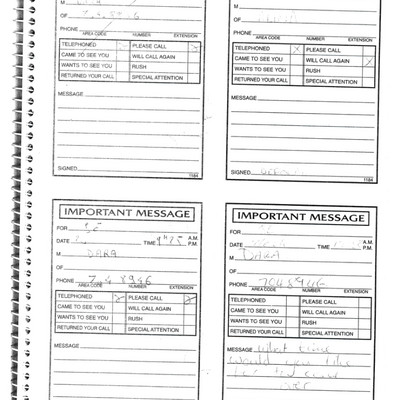 M
OF
PHONE
AREA CODE NUMBER EXTENSION
TELEPHONED PLEASE CALL
CAME TO SEE YOU WILL CALL AGAIN
WANTS TO SEE YOU RUSH
RETURNED YOUR CALL SPECIAL ATTENTION
MESSAGE
SIGNED
1184
OF
PHONE
AREA CODE NUMBER EXTENSION
TELEPHONED X PLEASE CALL
CAME TO SEE YOU WILL CALL AGAIN X
WANTS TO SEE YOU RUSH
RETURNED YOUR CALL SPECIAL ATTENTION
MESSAGE
SIGNED
1184
IMPORTANT MESSAGE
FOR
DATE TIME A.M. P.M.
M DARA
OF
PHONE
AREA CODE NUMBER EXTENSION
TELEPHONED X PLEASE CALL X
CAME TO SEE YOU WILL CALL AGAIN
WANTS TO SEE YOU RUSH
RETURNED YOUR CALL SPECIAL ATTENTION
MESSAGE
IMPORTANT MESSAGE
FOR
DATE TIME A.M. P.M.
M DARA
OF
PHONE 7048946
AREA CODE NUMBER EXTENSION
TELEPHONED PLEASE CALL
CAME TO SEE YOU WILL CALL AGAIN
WANTS TO SEE YOU RUSH
RETURNED YOUR CALL SPECIAL ATTENTION
MESSAGE What time
would you like
her to come
over